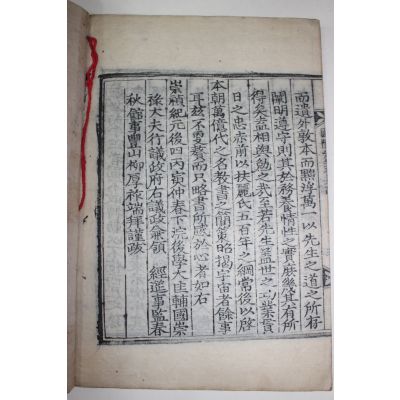 而遺外敎本而黜淳萬一以先生之道之所存
闡明遵守則其於務養情性之實庶幾其有所
得矣盍相與勉之哉至若先生盖世之功業貫
日之忠赤前以扶麗氏五百年之綱常後以啓
本朝萬億代之名教書之簡策昭揭宇宙者餘事
耳玆不要贅而只略書所感於心者如右
崇禎紀元後四丙寅仲春下浣後學大匡輔國崇
祿大夫行議政府右議政兼領 經筵事監春
秋館事豐山柳厚祚端拜謹跋